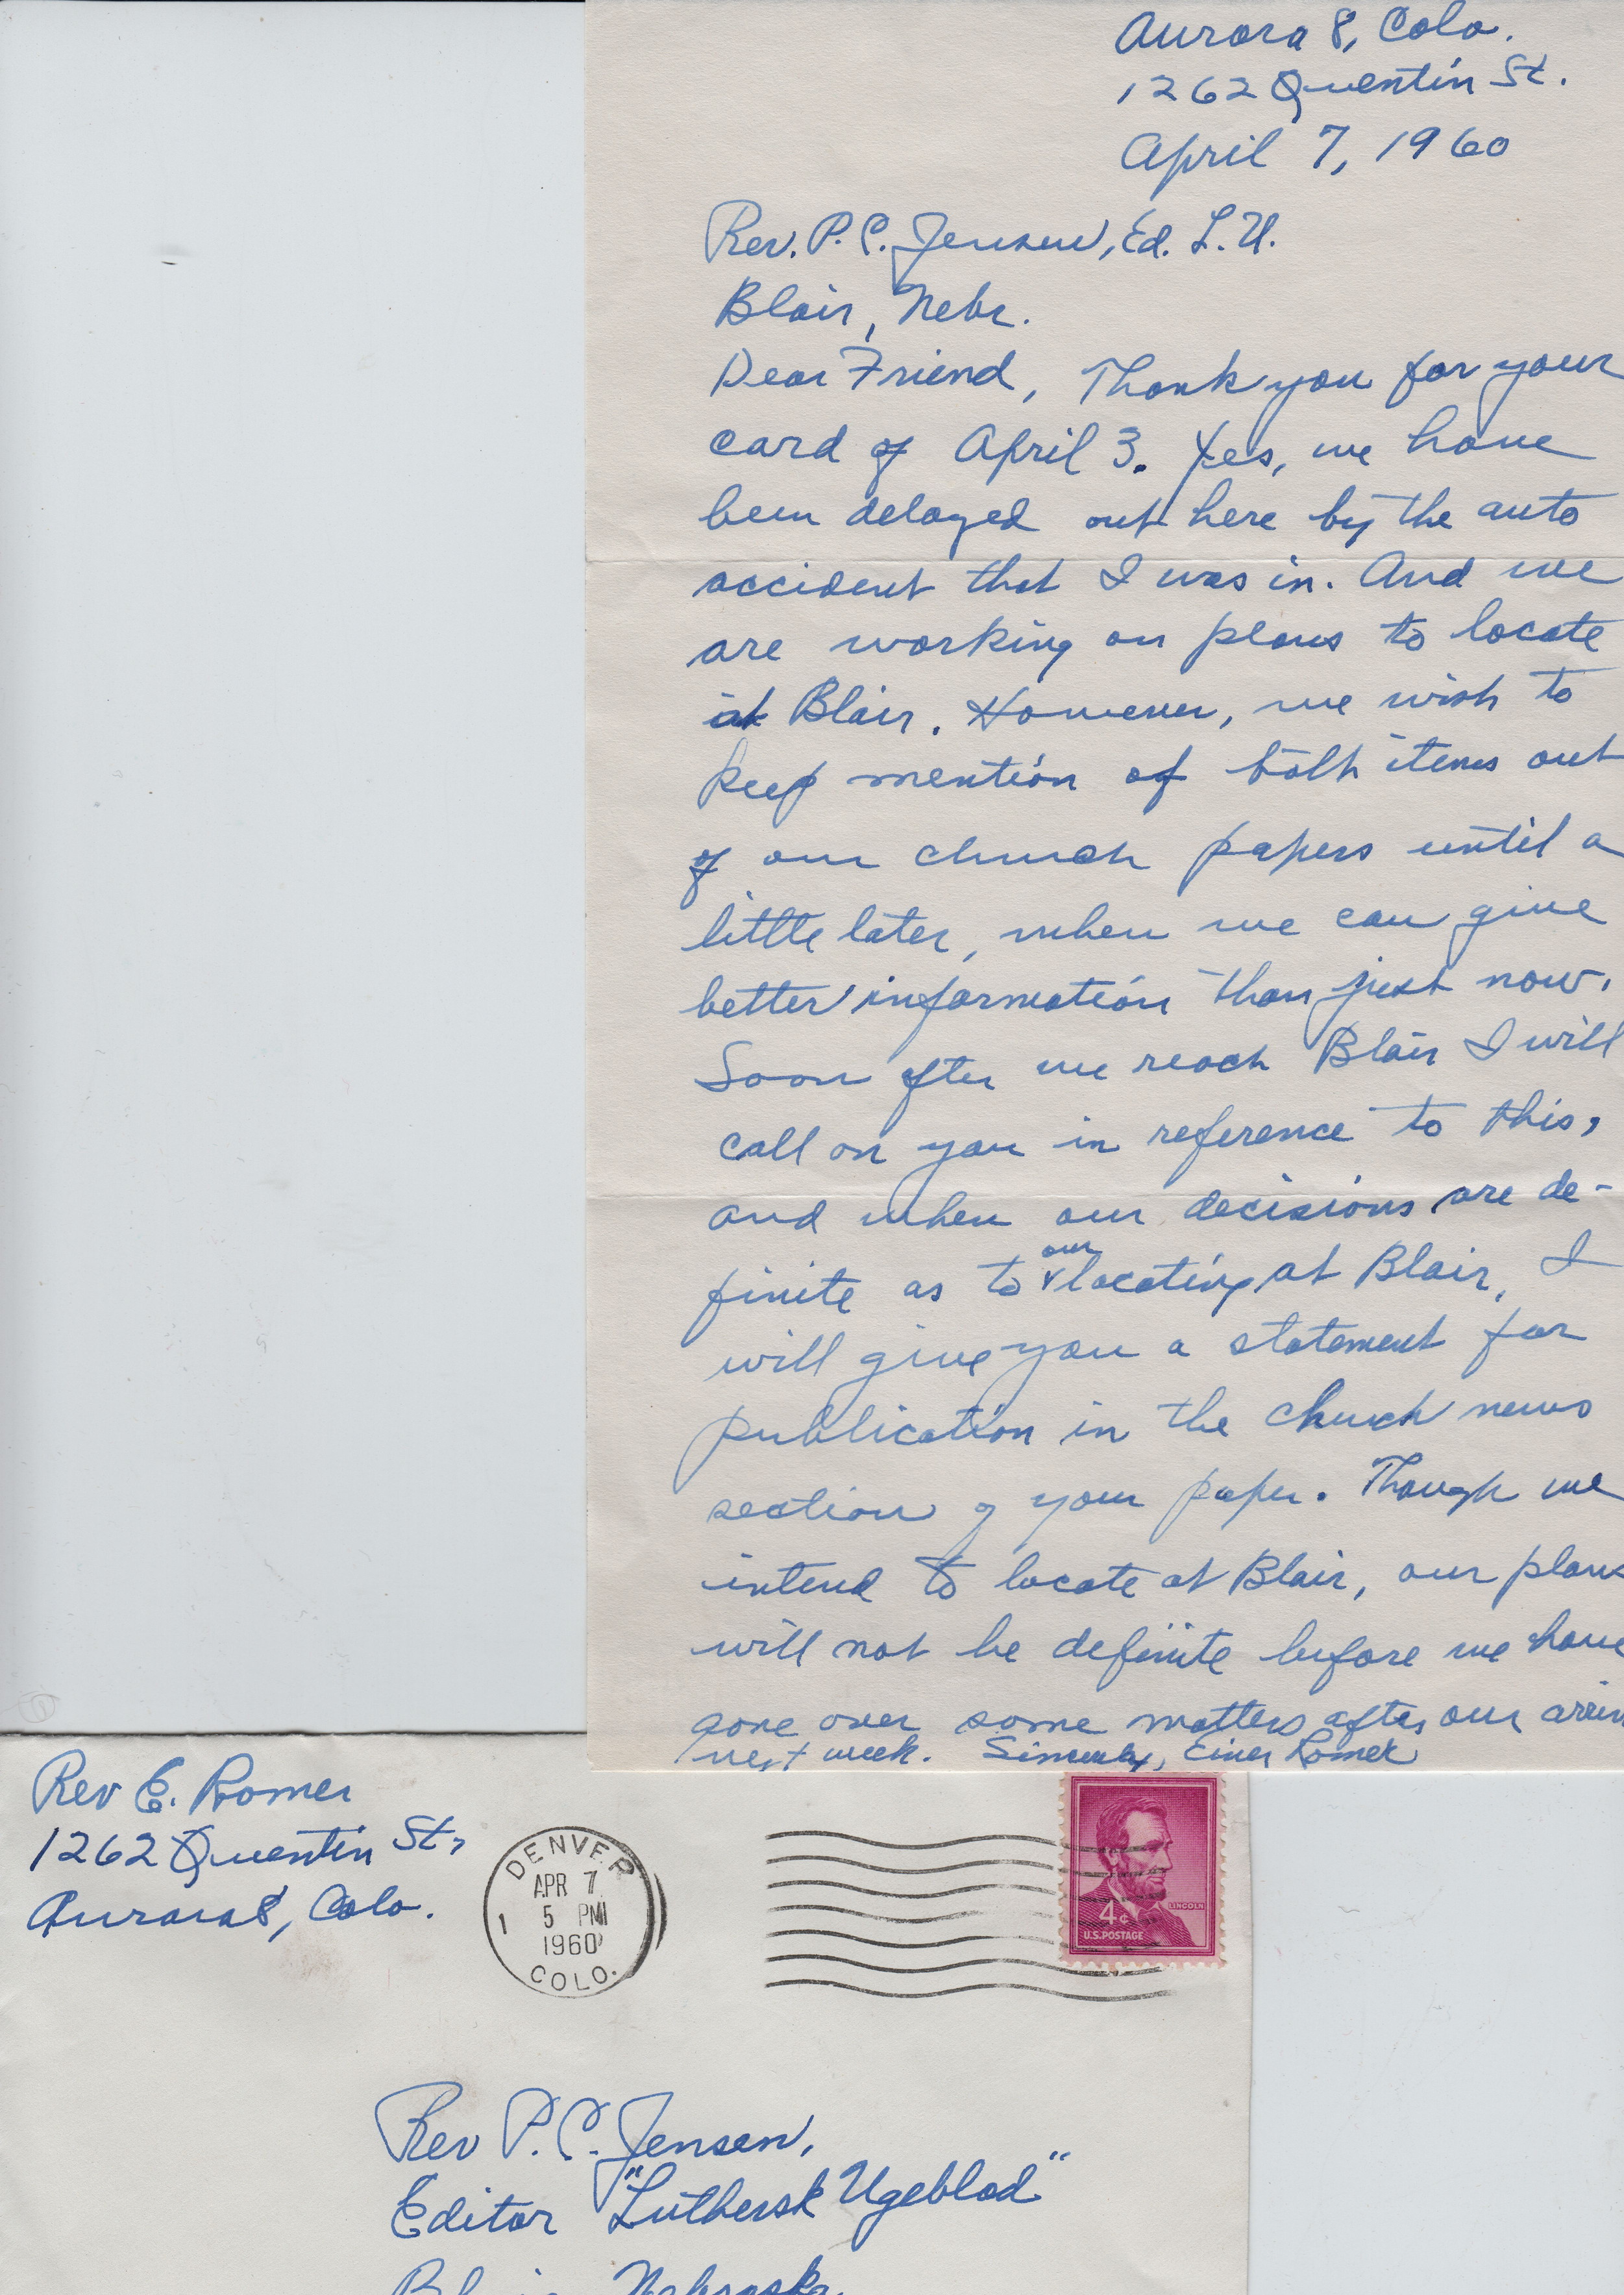 Aurora 8, Colo.
1262 Quentin St.
April 7, 1960
Rev. P. C. Jensen, Ed. L. U.
Blair, Nebr.
Dear Friend, Thank you for your
card of April 3. Yes, we have
been delayed out here by the auto
accident that I was in. And we
are working on plans to locate
at Blair. However, we wish to
keep mention of both items out
of our church papers until a
little later, when we can give
better information than just now.
Soon after we reach Blair I will
call on you in reference to this,
and when our decisions are de-
finite as to our locating at Blair, I
will give you a statement for
publication in the church news
section of your paper. Though we
intend to locate at Blair, our plans
will not be definite before we have
gone over some matters after our arriv
next week. Sincerely, Einer Romer
Rev E. Romer
1262 Quentin St,
Aurora 8, Colo.
DENVER
APR 7
5 PM
1960
1
COLO.
4¢
LINCOLN
U.S. POSTAGE
Rev P. C. Jensen,
Editor "Luthersk Ugeblad"
Blair, Nebraska